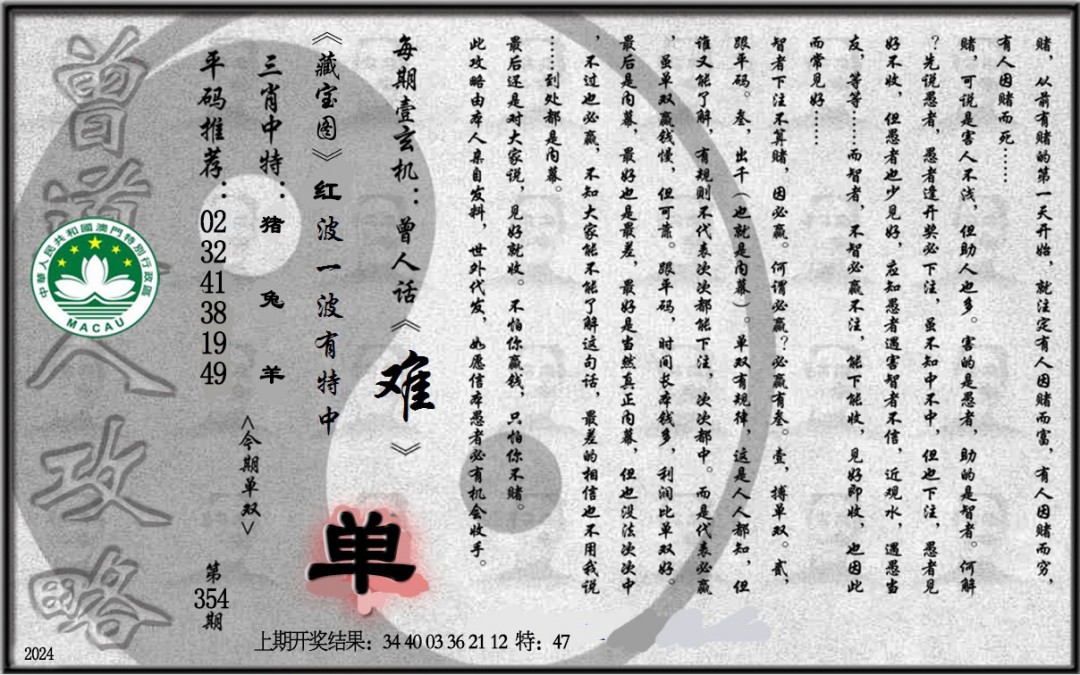 赌，从前有赌的第一天开始，就注定有人因赌而富，有人因赌而穷，
有人因赌而死……
赌，可说是害人不浅，但助人也多。害的是愚者，助的是智者。何解
？先说愚者，愚者逢开奖必下注，虽不知中不中，但也下注，愚者见
好不收，但愚者也少见好，应知愚者遇害智者不信，近观水，遇愚当
友，等等……而智者，不智必赢不注，能下能收，见好即收，也因此
而常见好……
智者下注不算赌，因必赢。何谓必赢？必赢有叁。壹，搏单双。贰，
跟平码。叁，出千（也就是内幕）。单双有规律，这是人人都知，但
谁又能了解，有规则不代表次次都能下注，次次都中。而是代表必赢
，虽单双赢钱慢，但可靠。跟平码，时间长本钱多，利润比单双好。
最后是内幕，最好也是最差，最好是当然真正内幕，但也没法次次中
，不过也必赢，不知大家能不能了解这句话，最差的相信也不用我说
……到处都是内幕。
最后还是对大家说，见好就收。不怕你赢钱，只怕你不赌。
此攻略由本人亲自发料，世外代发，如愿信本愚者必有机会收手。
每期壹玄机：曾人话《难》
《藏宝图》红波一波有特中
单
三肖中特：猪 兔 羊
<今期单双>
平码推荐：02 32 41 38 19 49
第354期
曾道人攻略
中華人民共和國澳門特別行政區
MACAU
上期开奖结果：34 40 03 36 21 12 特：47
2024